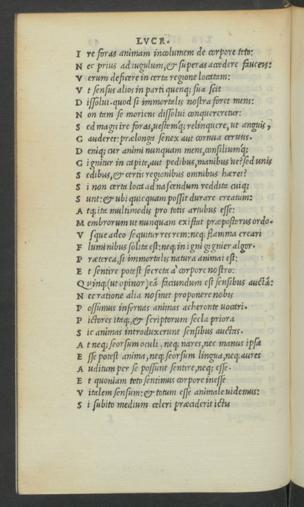 LVCR.
I re foras animam incolumem de corpore toto:
N ec prius ad iugulum, & superas accedere fauces:
V erum deficere in certa regione locatam:
V t sensus alios in parti quenq; sua scit
D issolui. quod si immortalis nostra foret mens:
N on tam se moriens dissolui conquereretur:
S ed magis ire foras, uestemq; relinquere, ut anguis,
G auderet: prælongo senex aut cornua ceruus.
D eniq; cur animi nunquam mens, consiliumq;
G ignitur in capite, aut pedibus, manibus ue? sed unis
S edibus, & certis regionibus omnibus hæret?
S i non certa loca ad nascendum reddita cuiq;
S unt: & ubi quicquam possit durare creatum:
A tq; ita multimodis pro totis artubus esse:
M embrorum ut nunquam existat præposterus ordo.
V sque adeo sequitur res rem: neq; flamma creari
F luminibus solita est: neq; in igni gignier algor.
P ræterea, si immortalis natura animai est;
E t sentire potest secreta à corpore nostro:
Q uinq; (ut opinor) eã faciundum est sensibus auctã:
N ec ratione alia nosmet proponere nobis
P ossumus infernas animas acheronte uocari.
P ictores itaq;, & scriptorum secla priora
S ic animas introduxerunt sensibus auctas.
A t neq; seorsum oculi, neq; nares, nec manus ipsa
E sse potest anima, neq; seorsum lingua, neq; aures
A uditum per se possunt sentire, neq; esse.
E t quoniam toto sentimus corpore inesse
V italem sensum: & totum esse animale uidemus:
S i subito medium celeri præciderit ictu